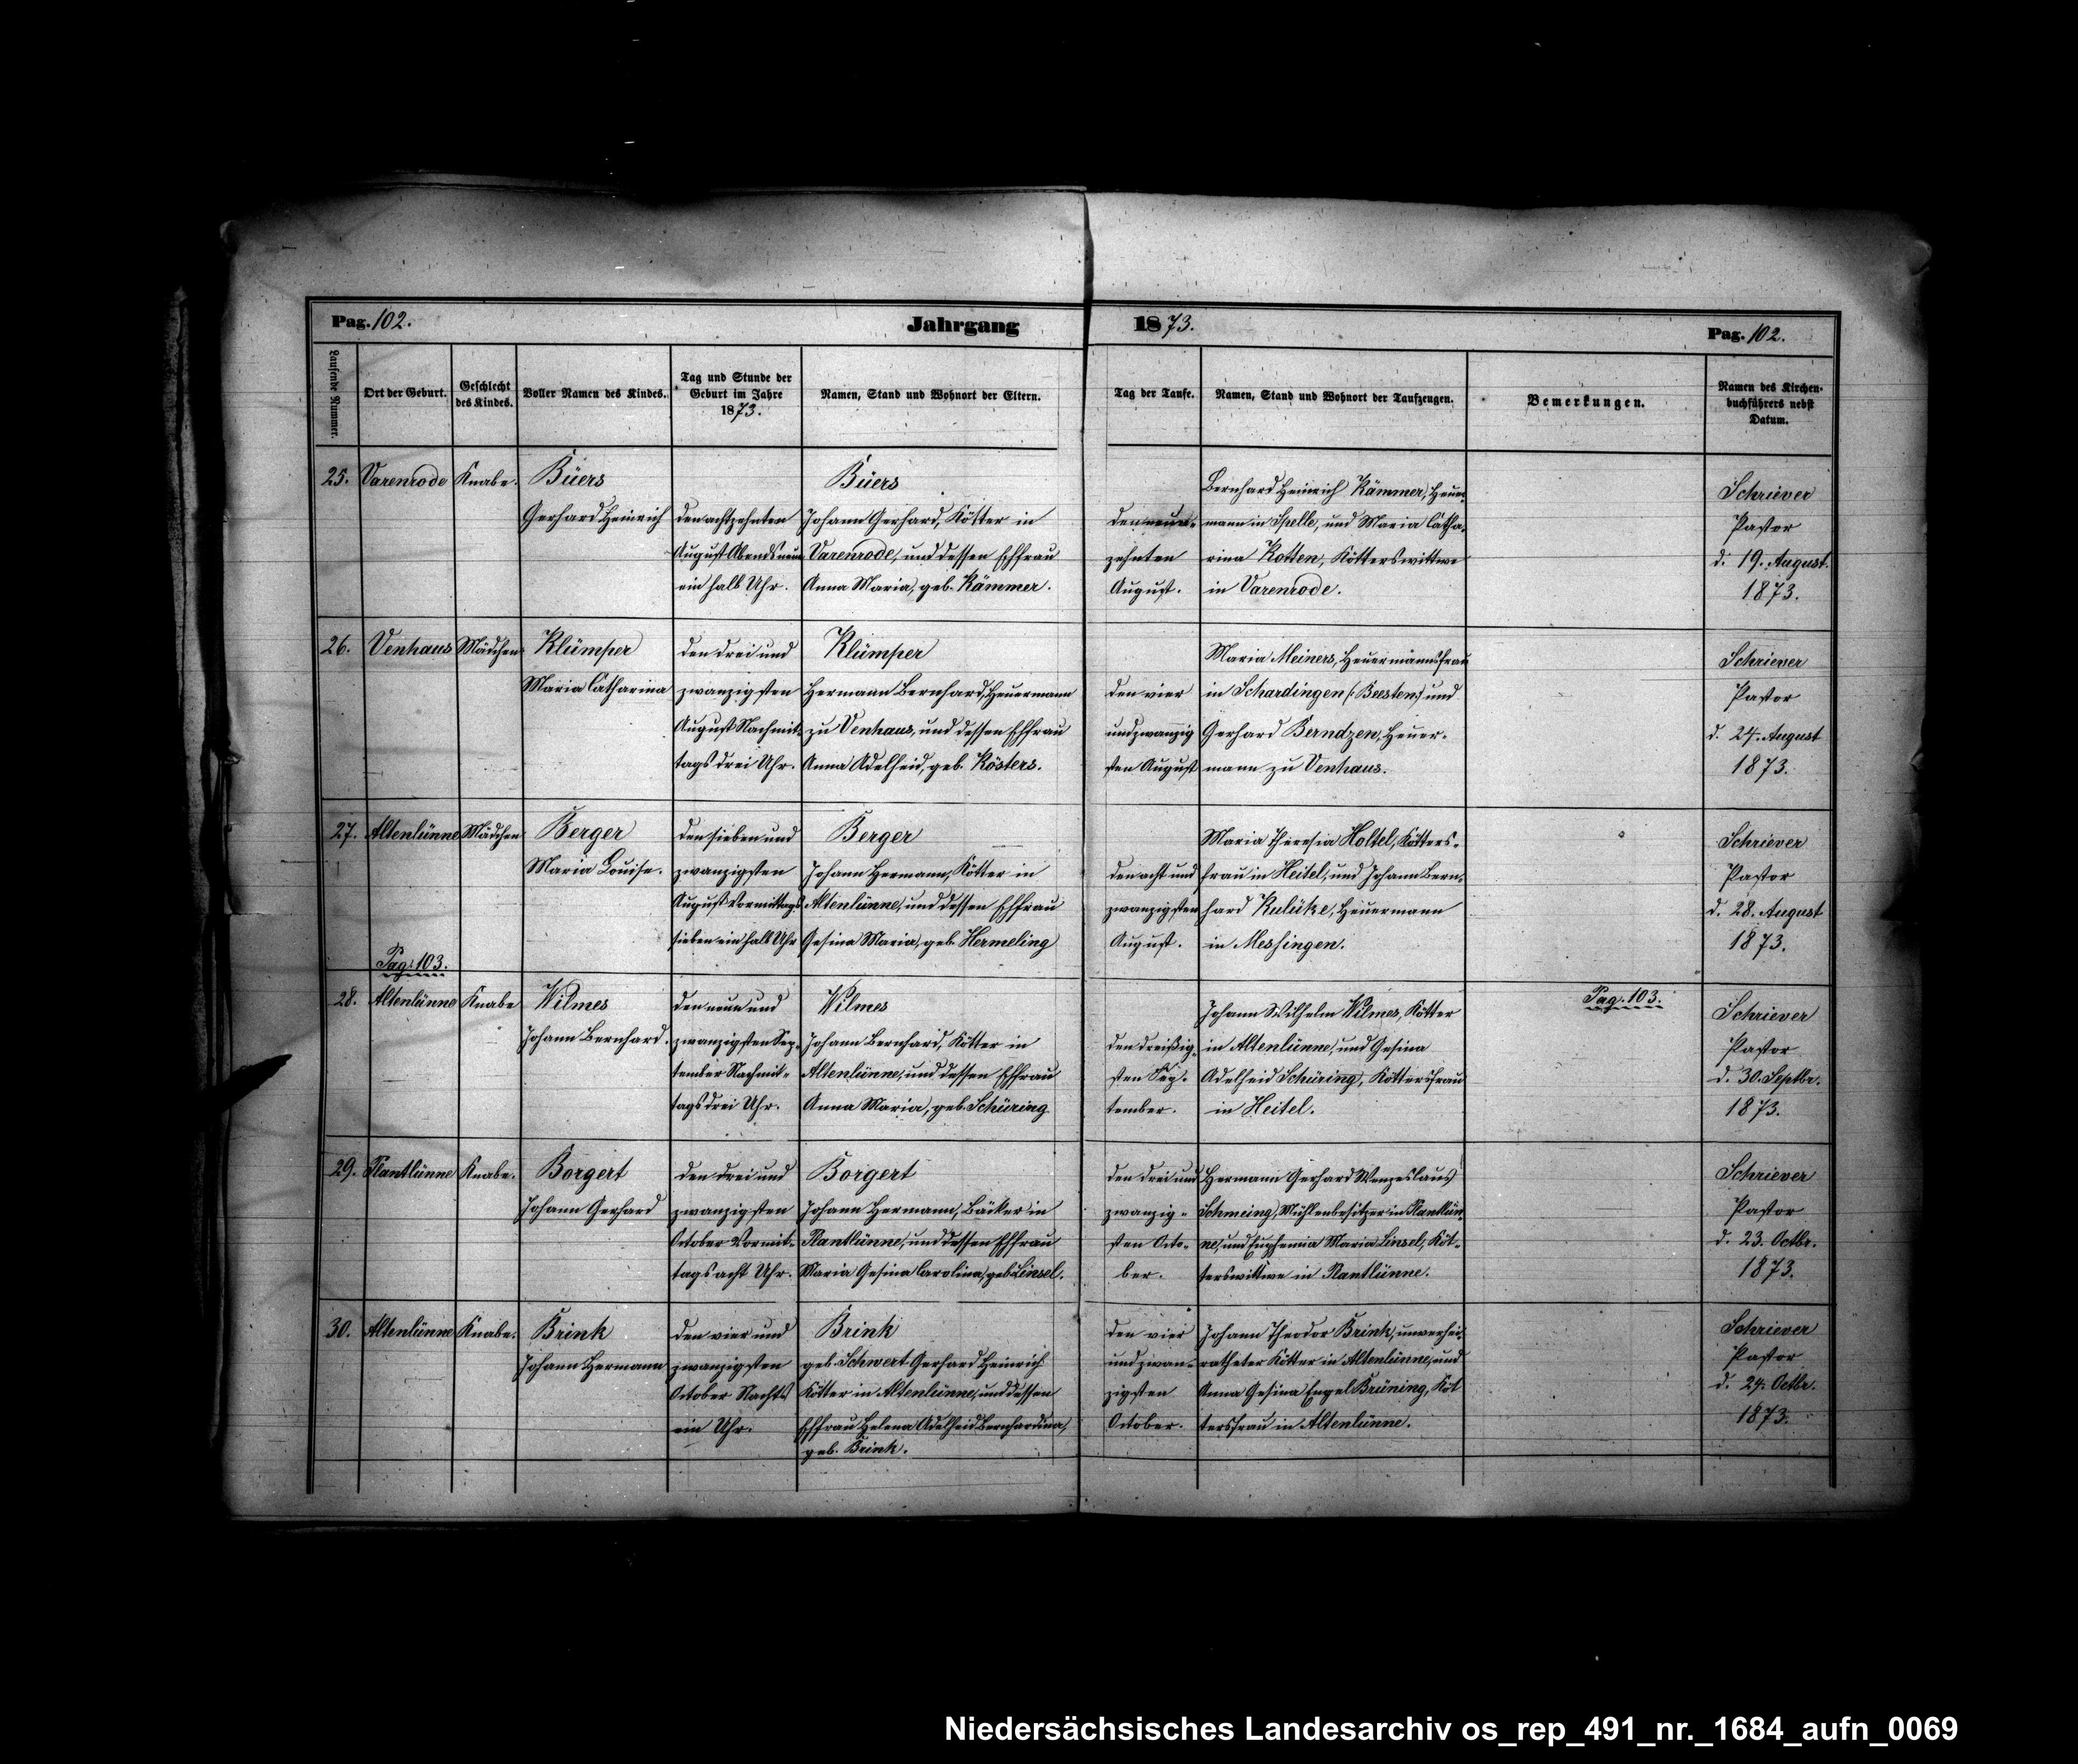 Pag. 102.
Jahrgang
1873.
Pag. 102.
Laufende Nummer.
Ort der Geburt.
Geschlecht
des Kindes.
Voller Namen des Kindes.
Tag und Stunde der
Geburt im Jahre
1873.
Namen, Stand und Wohnort der Eltern.
Tag der Taufe.
Namen, Stand und Wohnort der Taufzeugen.
Bemerkungen.
Namen des Kirchen-
buchführers nebst
Datum.
25.
Varenrode
Knabe.
Büers
Gerhard Heinrich
den achtzehnten
August Abends neun
ein halb Uhr.
Büers
Johann Gerhard, Kötter in
Varenrode, und dessen Ehfrau
Anna Maria, geb. Kämmer.
den neun-
zehnten
August.
Bernhard Heinrich Kämmer, Heuer-
mann in Spelle, und Maria Catha-
rina Kotten, Kötterswittwe
in Varenrode.
Schriever
Pastor
d. 19. August.
1873.
26.
Venhaus
Mädchen
Klümper
Maria Catharina
den drei und
zwanzigsten
August Nachmit-
tags drei Uhr.
Klümper
Hermann Bernhard, Heuermann
zu Venhaus, und dessen Ehfrau
Anna Adelheid, geb. Kösters.
den vier
und zwanzig
sten August
Maria Meiners, Heuermannsfrau
in Schardingen (:Beesten:) und
Gerhard Berndzen, Heuer-
mann zu Venhaus.
Schriever
Pastor
d. 24. August
1873.
27.
Altenlünne
Mädchen
Berger
Maria Louise.
den sieben und
zwanzigsten
August Vormittags
sieben ein halb Uhr
Berger
Johann Hermann, Kötter in
Altenlünne, und dessen Ehfrau
Gesina Maria, geb. Hermeling
den acht und
zwanzigsten
August.
Maria Theresia Holtel, Kötters-
frau in Heitel, und Johann Bern-
hard Kulüke, Heuermann
in Messingen.
Schriever
Pastor
d. 28. August
1873.
Pag. 103.
28.
Altenlünne
Knabe
Wilmes
Johann Bernhard.
den neun und
zwanzigsten Sep-
tember Nachmit-
tags drei Uhr.
Wilmes
Johann Bernhard, Kötter in
Altenlünne, und dessen Ehfrau
Anna Maria, geb. Schüring
den dreißig-
sten Sep-
tember.
Johann Wilhelm Wilmes, Kötter
in Altenlünne, und Gesina
Adelheid Schüring, Köttersfrau
in Heitel.
Pag. 103.
Schriever
Pastor
d. 30. Septbr.
1873.
29.
Plantlünne
Knabe.
Borgert
Johann Gerhard
den drei und
zwanzigsten
October Vormit-
tags acht Uhr.
Borgert
Johann Hermann, Bäcker in
Plantlünne, und dessen Ehfrau
Maria Gesina Carolina, geb. Linsel.
den drei und
zwanzig-
sten Octo-
ber.
Hermann Gerhard Wenzeslaus
Schmeing, Mühlenbesitzer in Plantlün-
ne, und Euphemia Maria Linsel, Köt-
terswittwe in Plantlünne.
Schriever
Pastor
d. 23. Octbr.
1873.
30.
Altenlünne
Knabe.
Brink
Johann Hermann
den vier und
zwanzigsten
October Nachts
ein Uhr.
Brink
geb. Schwert Gerhard Heinrich
Kötter in Altenlünne, und dessen
Ehfrau Helena Adelheid Bernhardina,
geb. Brink.
den vier
und zwan-
zigsten
October.
Johann Theodor Brink, unverhei-
ratheter Kötter in Altenlünne, und
Anna Gesina Engel Brüning, Köt
tersfrau in Altenlünne.
Schriever
Pastor
d. 24. Octbr.
1873.
Niedersächsisches Landesarchiv os_rep_491_nr._1684_aufn_0069